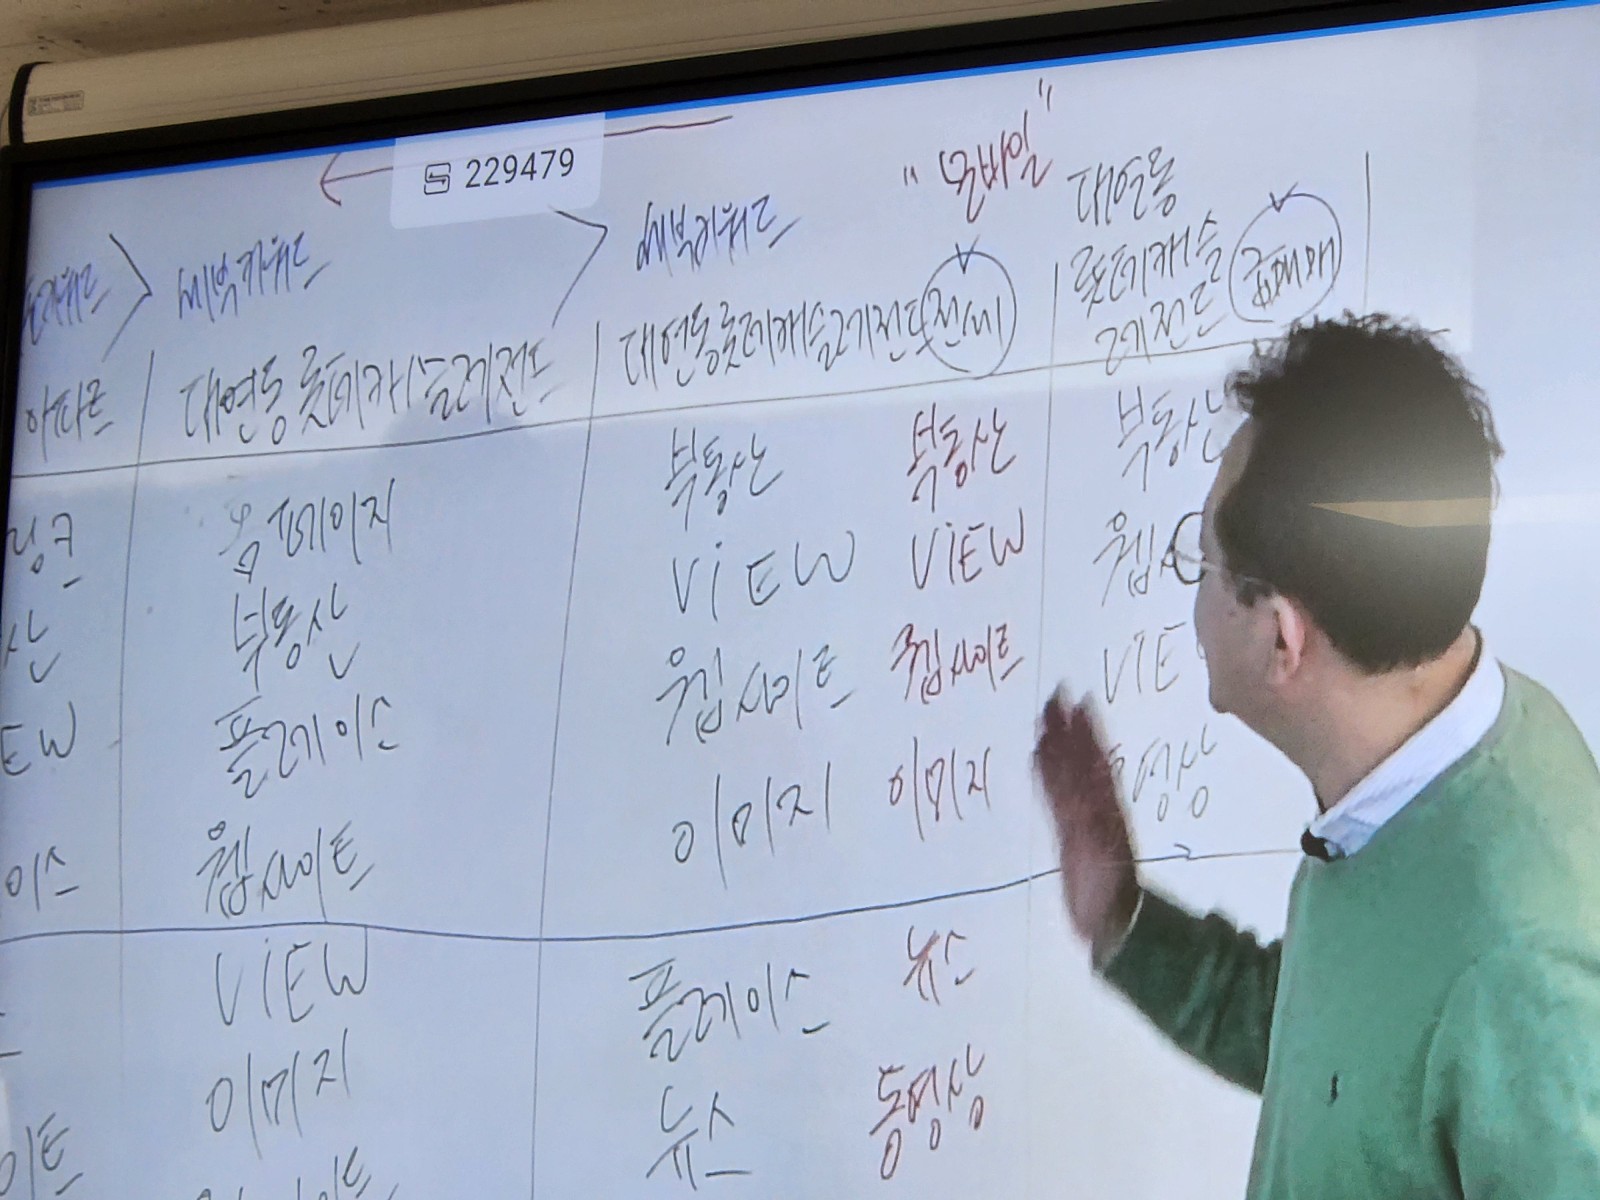 229479
"모바일"
세부키워드
세부키워드
대연동
롯데캐슬
레전드
아파트
대연동롯데캐슬레전드
대연동롯데캐슬레전드전세
홈페이지
부동산
부동산
부동산
링크
부동산
VIEW
VIEW
산
플레이스
웹사이트
웹사이트
VIE
EW
웹사이트
이미지
이미지
동영상
이스
VIEW
플레이스
뉴스
이미지
뉴스
동영상